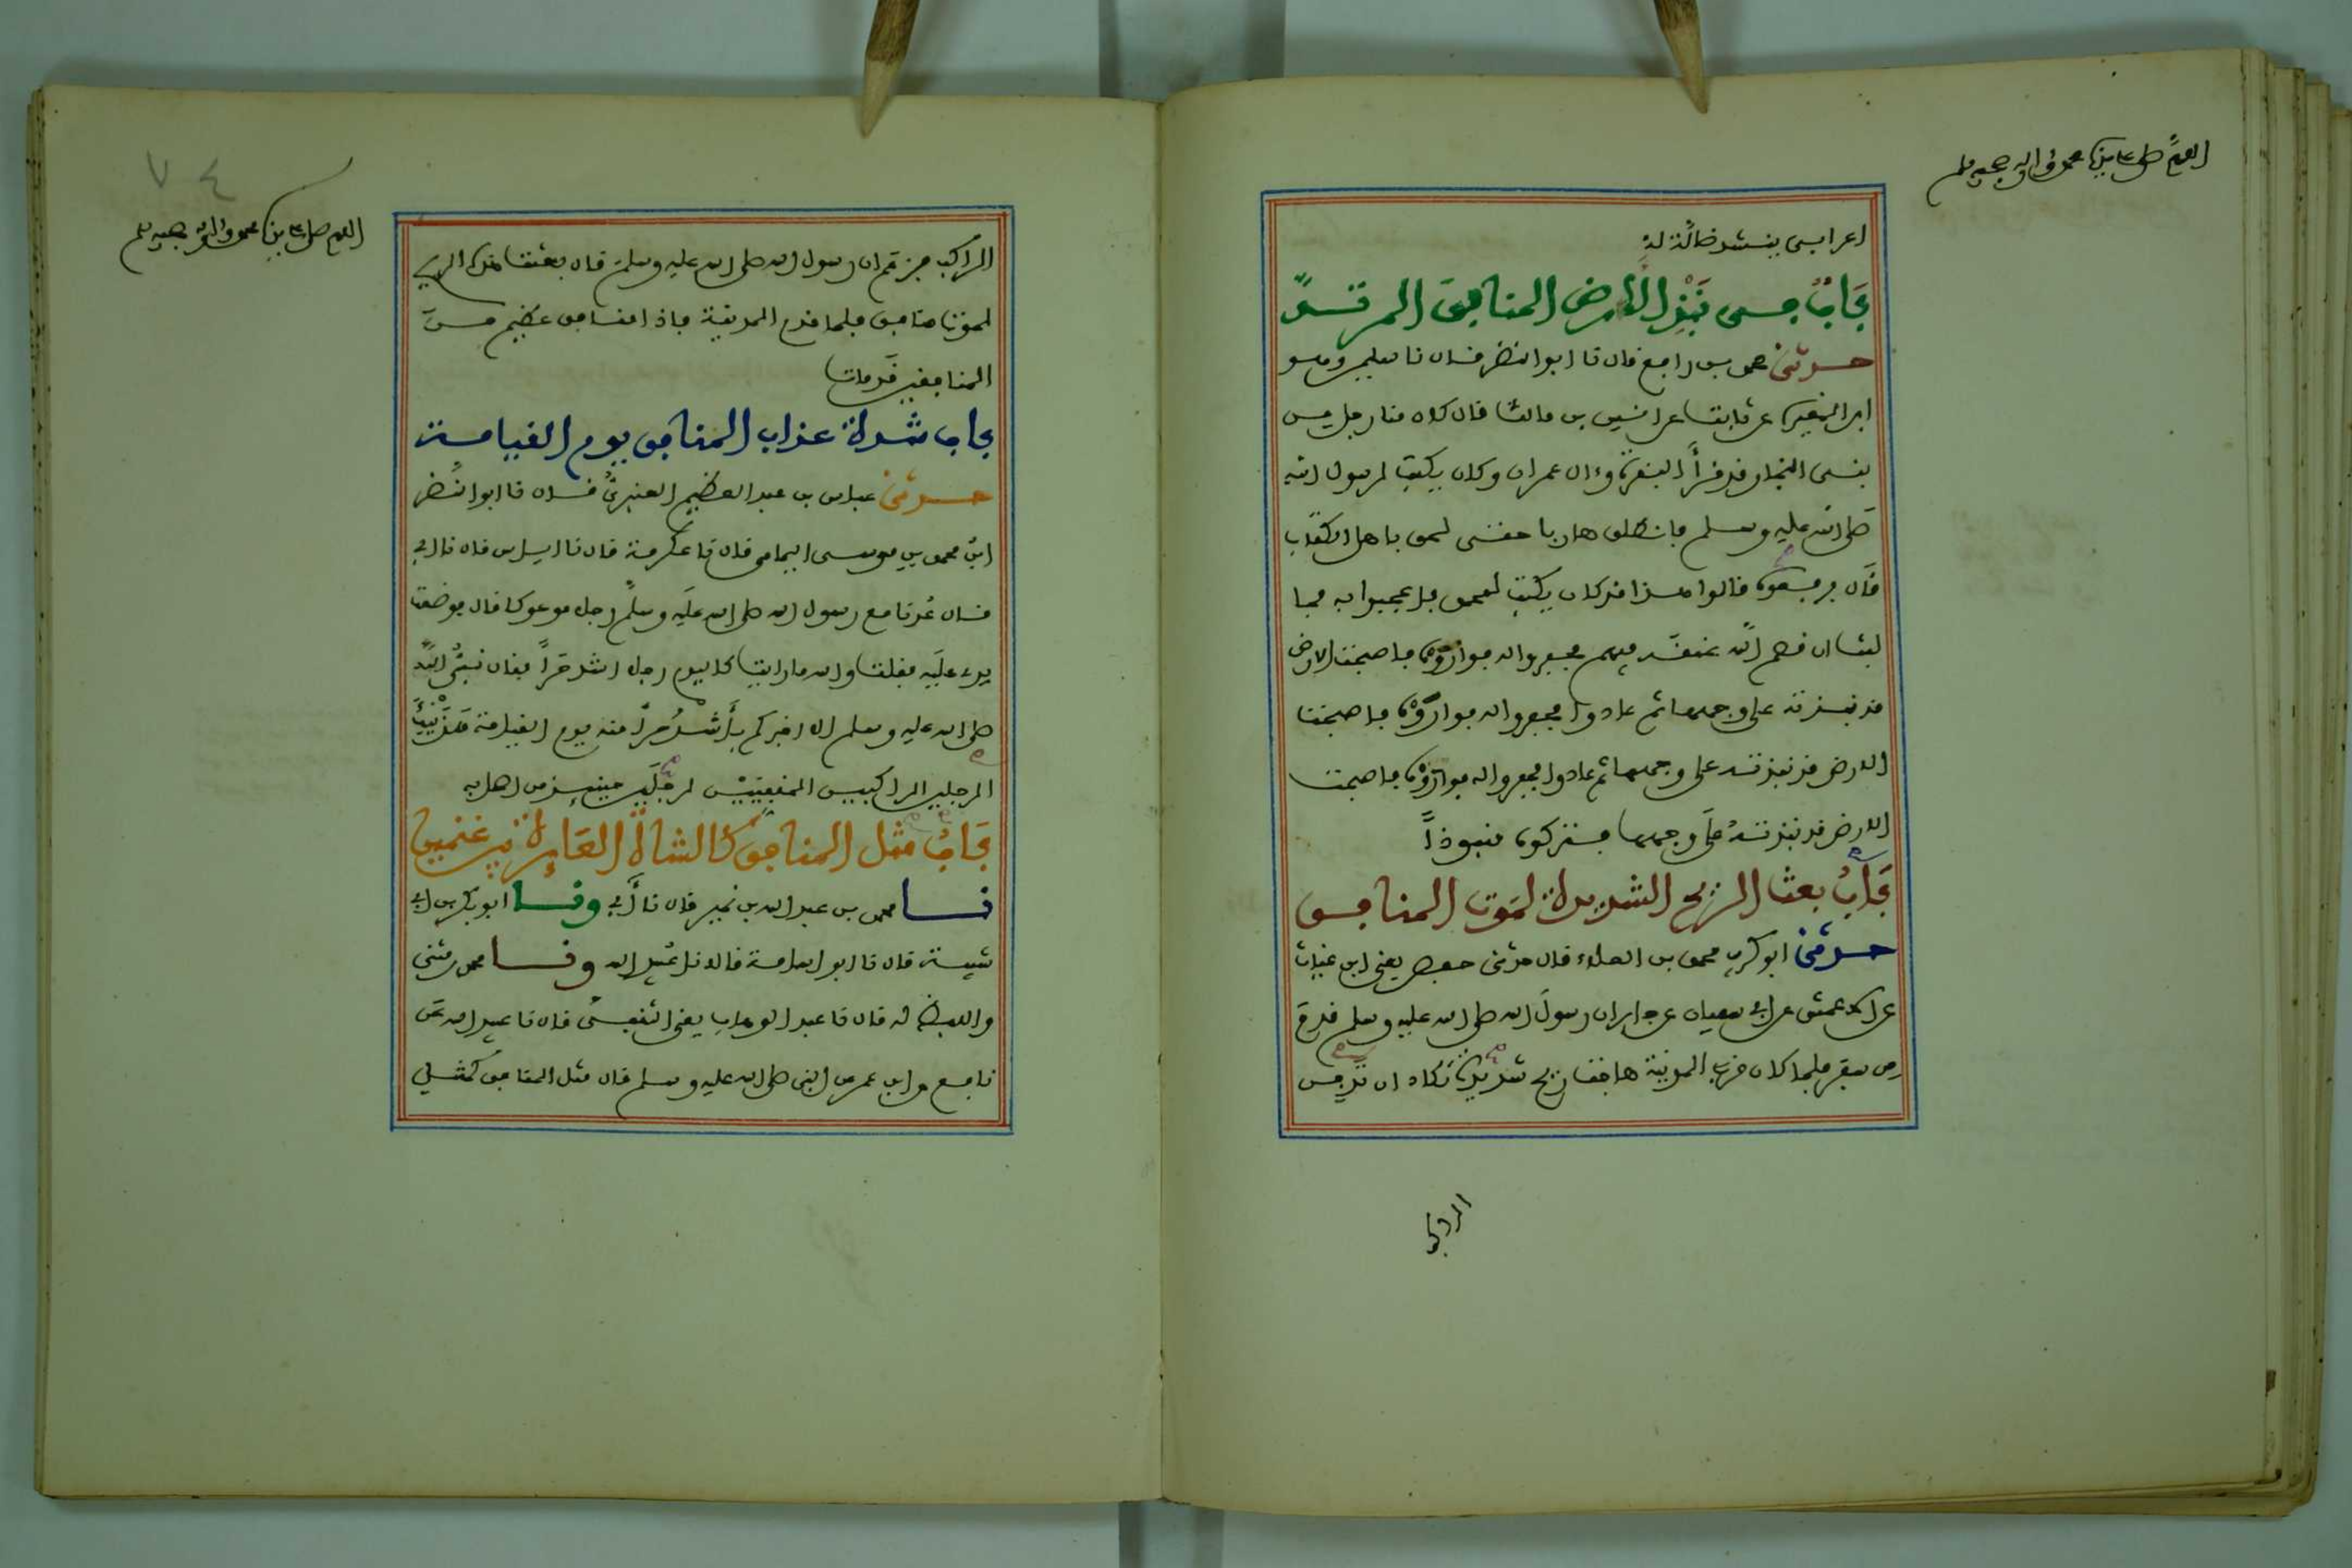 اللهم صل على نبينا محمد وآله وصحبه وسلم
اعرابى ينشد ضالة له
باب في نبذ الارض المنافق المرتد
حدثنى محمد بن رافع قال نا ابو النضر قال نا سليمن وهو
ابن المغيرة عن ثابت عن انس بن مالك قال كان منا رجل من
بنى النجار قد قرأ البقرة وءال عمران وكان يكتب لرسول الله
صلى الله عليه وسلم فانطلق هاربا حتى لحق باهل الكتاب
قال فرفعوه قالوا هذا قد كان يكتب لمحمد فاعجبوا به فما
لبث ان قصم الله عنقه فيهم فحفروا له فواروه فاصبحت الارض
قد نبذته على وجهها ثم عادوا فحفروا له فواروه فاصبحت
الارض قد نبذته على وجهها ثم عادوا فحفروا له فواروه فاصبحت
الارض قد نبذته على وجهها فتركوه منبوذاً
باب بعث الريح الشديدة لموت المنافق
حدثنى ابو كريب محمد بن العلاء قال حدثنى حفص يعنى ابن غياث
عن الاعمش عن ابى سفيان عن جابر ان رسول الله صلى الله عليه وسلم قدم
من سفر فلما كان قرب المدينة هاجت ريح شديدة تكاد ان تدفن
الراكب
اللهم صل على نبينا محمد وآله وصحبه وسلم
٧٤
الراكب فزعم ان رسول الله صلى الله عليه وسلم قال بعثت هذه الريح
لموت منافق فلما قدم المدينة فاذا منافق عظيم من
المنافقين قد مات
باب شدة عذاب المنافق يوم القيامة
حدثنى عباس بن عبد العظيم العنبرى قال نا ابو النضر
ابن محمد بن موسى اليمامى قال نا عكرمة قال نا اياس قال نا ابى
قال عدنا مع رسول الله صلى الله عليه وسلم رجل موعوكا قال فوضعت
يدى عليه فقلت والله ما رايت كاليوم رجلا اشد حراً فقال نبى الله
صلى الله عليه وسلم الا اخبركم بأشد حراً منه يوم القيامة هذينك
الرجلين الراكبين المقفيين لرجلين حينئذ من اصحابه
باب مثل المنافق كالشاة العائرة بين غنمين
نا محمد بن عبد الله بن نمير قال نا أبى ونا ابو بكر بن ابى
شيبة قال نا ابو اسامة قالا نا عبيد الله ونا محمد بن مثنى
واللفظ له قال نا عبد الوهاب يعنى الثقفى قال نا عبيد الله عن
نافع عن ابن عمر عن النبى صلى الله عليه وسلم قال مثل المنافق كمثل